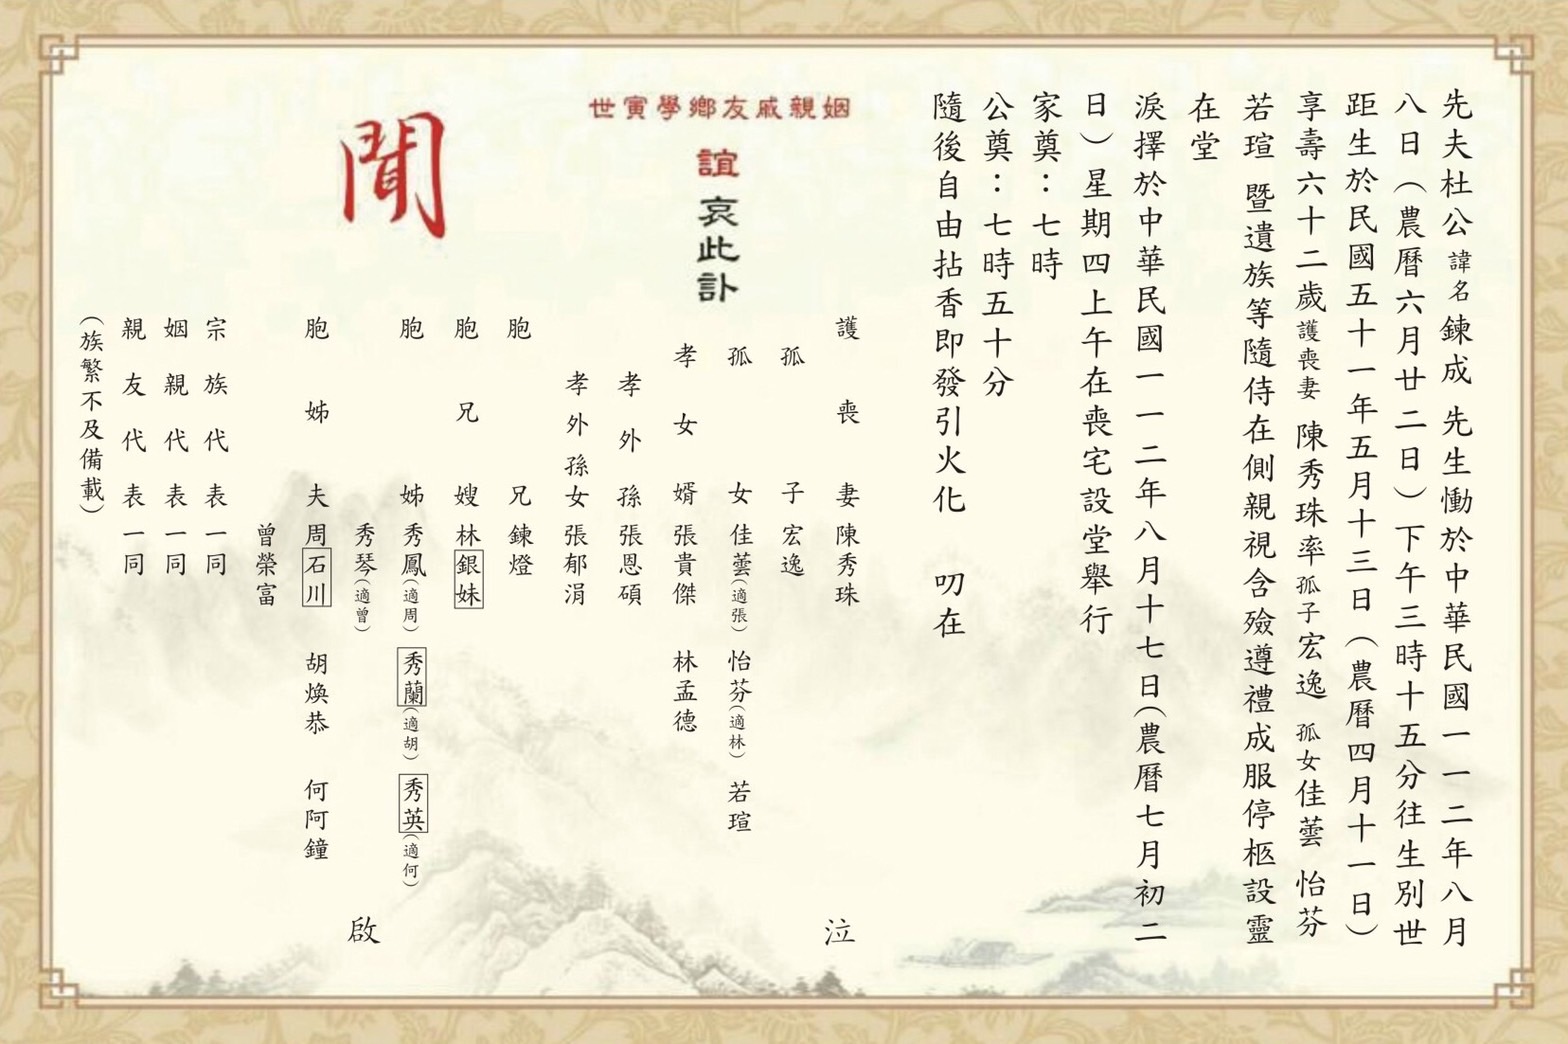 先夫杜公諱名鍊成 先生慟於中華民國一一二年八月
八日（農曆六月廿二日）下午三時十五分往生別世
距生於民國五十一年五月十三日（農曆四月十一日）
享壽六十二歲護喪妻 陳秀珠率孤子宏逸 孤女佳蕓 怡芬
若瑄 暨遺族等隨侍在側親視含殮遵禮成服停柩設靈
在堂
淚擇於中華民國一一二年八月十七日（農曆七月初二
日）星期四上午在喪宅設堂舉行
家奠：七時
公奠：七時五十分
隨後自由拈香即發引火化 叨在
姻親戚友鄉學寅世
誼哀此訃
聞
護喪妻陳秀珠
孤子宏逸
孤女佳蕓（適張） 怡芬（適林） 若瑄
孝女婿張貴傑 林孟德
孝外孫張恩碩
孝外孫女張郁涓
胞兄鍊燈
胞兄嫂林銀妹
胞姊秀鳳（適周） 秀蘭（適胡） 秀英（適何）
秀琴（適曾）
胞姊夫周石川 胡煥恭 何阿鐘
曾榮富
泣
啟
宗族代表一同
姻親代表一同
親友代表一同
（族繁不及備載）